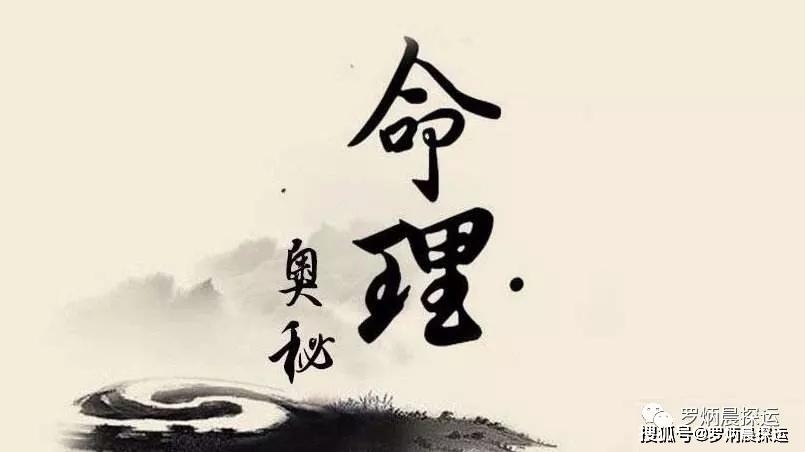 命理
奥秘
罗炳晨探运
搜狐号@罗炳晨探运